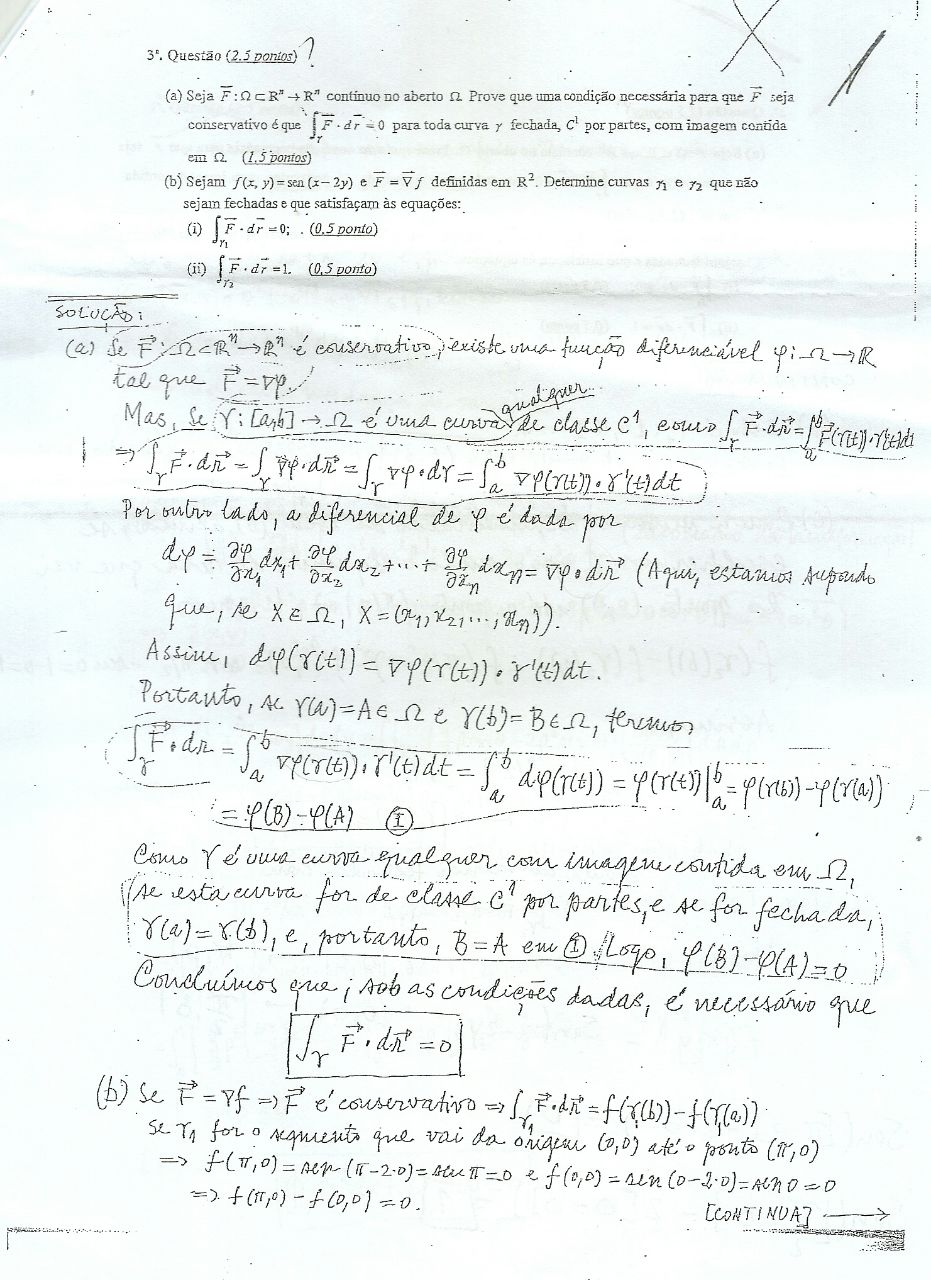 3ª. Questão (2,5 pontos) ?
(a) Seja F⃗ : Ω ⊂ Rⁿ → Rⁿ contínuo no aberto Ω. Prove que uma condição necessária para que F⃗ seja
conservativo é que ∫_γ F⃗ · dr⃗ = 0 para toda curva γ fechada, C¹ por partes, com imagem contida
em Ω. (1,5 pontos)
(b) Sejam f(x, y) = sen (x − 2y) e F⃗ = ∇⃗f definidas em R². Determine curvas γ₁ e γ₂ que não
sejam fechadas e que satisfaçam às equações:
(i) ∫_γ₁ F⃗ · dr⃗ = 0; . (0,5 ponto)
(ii) ∫_γ₂ F⃗ · dr⃗ = 1. (0,5 ponto)
SOLUÇÃO:
(a) Se F⃗ : Ω ⊂ Rⁿ → Rⁿ é conservativo, existe uma função diferenciável φ : Ω → R
tal que F⃗ = ∇φ.
Mas, se γ : [a,b] → Ω é uma curva qualquer de classe C¹, e como ∫_γ F⃗ · dr⃗ = ∫_a^b F⃗(γ(t)) · γ'(t)dt
⇒ ∫_γ F⃗ · dr⃗ = ∫_γ ∇φ · dr⃗ = ∫_γ ∇φ · dγ = ∫_a^b ∇φ(γ(t)) · γ'(t)dt
Por outro lado, a diferencial de φ é dada por
dφ = ∂φ/∂x₁ dx₁ + ∂φ/∂x₂ dx₂ + ... + ∂φ/∂xₙ dxₙ = ∇φ · dr⃗ (Aqui, estamos supondo
que, se X ∈ Ω, X = (x₁, x₂, ..., xₙ)).
Assim, dφ(γ(t)) = ∇φ(γ(t)) · γ'(t)dt.
Portanto, se γ(a) = A ∈ Ω e γ(b) = B ∈ Ω, teremos
∫_γ F⃗ · dr = ∫_a^b ∇φ(γ(t)) · γ'(t)dt = ∫_a^b dφ(γ(t)) = φ(γ(t))|_a^b = φ(γ(b)) − φ(γ(a))
= φ(B) − φ(A) Ⓘ
Como γ é uma curva qualquer com imagem contida em Ω,
se esta curva for de classe C¹ por partes, e se for fechada,
γ(a) = γ(b), e, portanto, B = A em Ⓘ. Logo, φ(B) − φ(A) = 0
Concluímos que, sob as condições dadas, é necessário que
∫_γ F⃗ · dr⃗ = 0
(b) Se F⃗ = ∇f ⇒ F⃗ é conservativo ⇒ ∫_γ₁ F⃗ · dr⃗ = f(γ₁(b)) − f(γ₁(a))
Se γ₁ for o segmento que vai da origem (0,0) até o ponto (π,0)
⇒ f(π,0) = sen (π − 2·0) = sen π = 0 e f(0,0) = sen (0 − 2·0) = sen 0 = 0
⇒ f(π,0) − f(0,0) = 0.
[CONTINUA] →